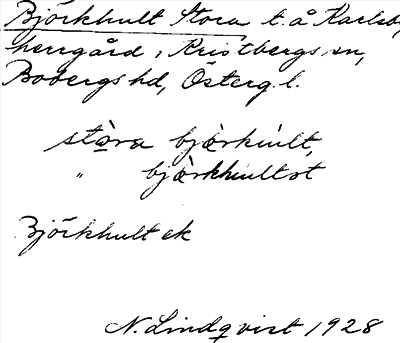 Björkhult Stora t. å Karlsby
herrgård, Kristbergs sn,
Bobergs hd, Österg. l.
stòra bjòrkùlt,
" bjòrkhultot
Björkhult ek
N. Lindqvist 1928